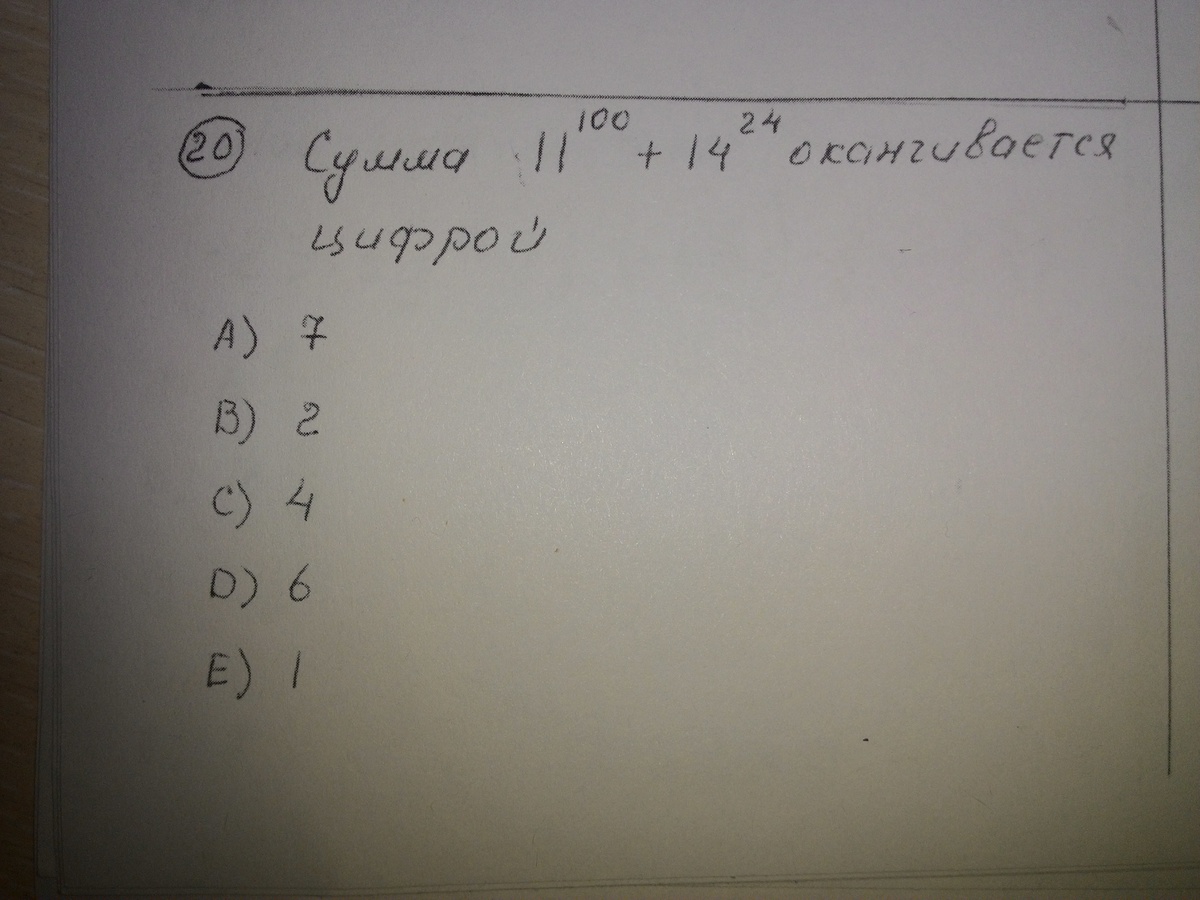 20 Сумма 11^100 + 14^24 оканчивается
цифрой
A) 7
B) 2
C) 4
D) 6
E) 1